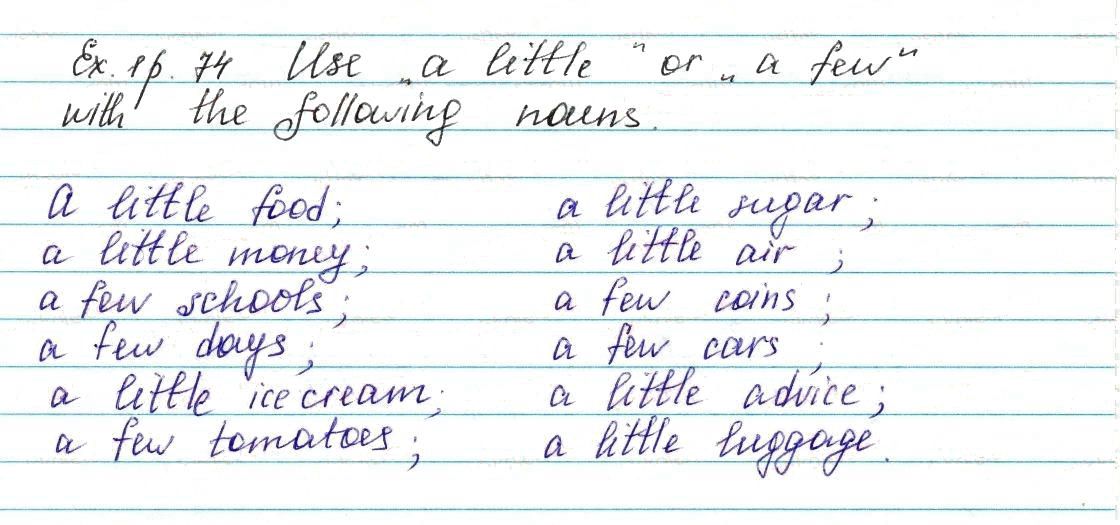 Ex. 1 p. 74 Use „a little" or „a few"
with the following nouns.
A little food; a little sugar;
a little money; a little air;
a few schools; a few coins;
a few days; a few cars;
a little ice cream; a little advice;
a few tomatoes; a little luggage.